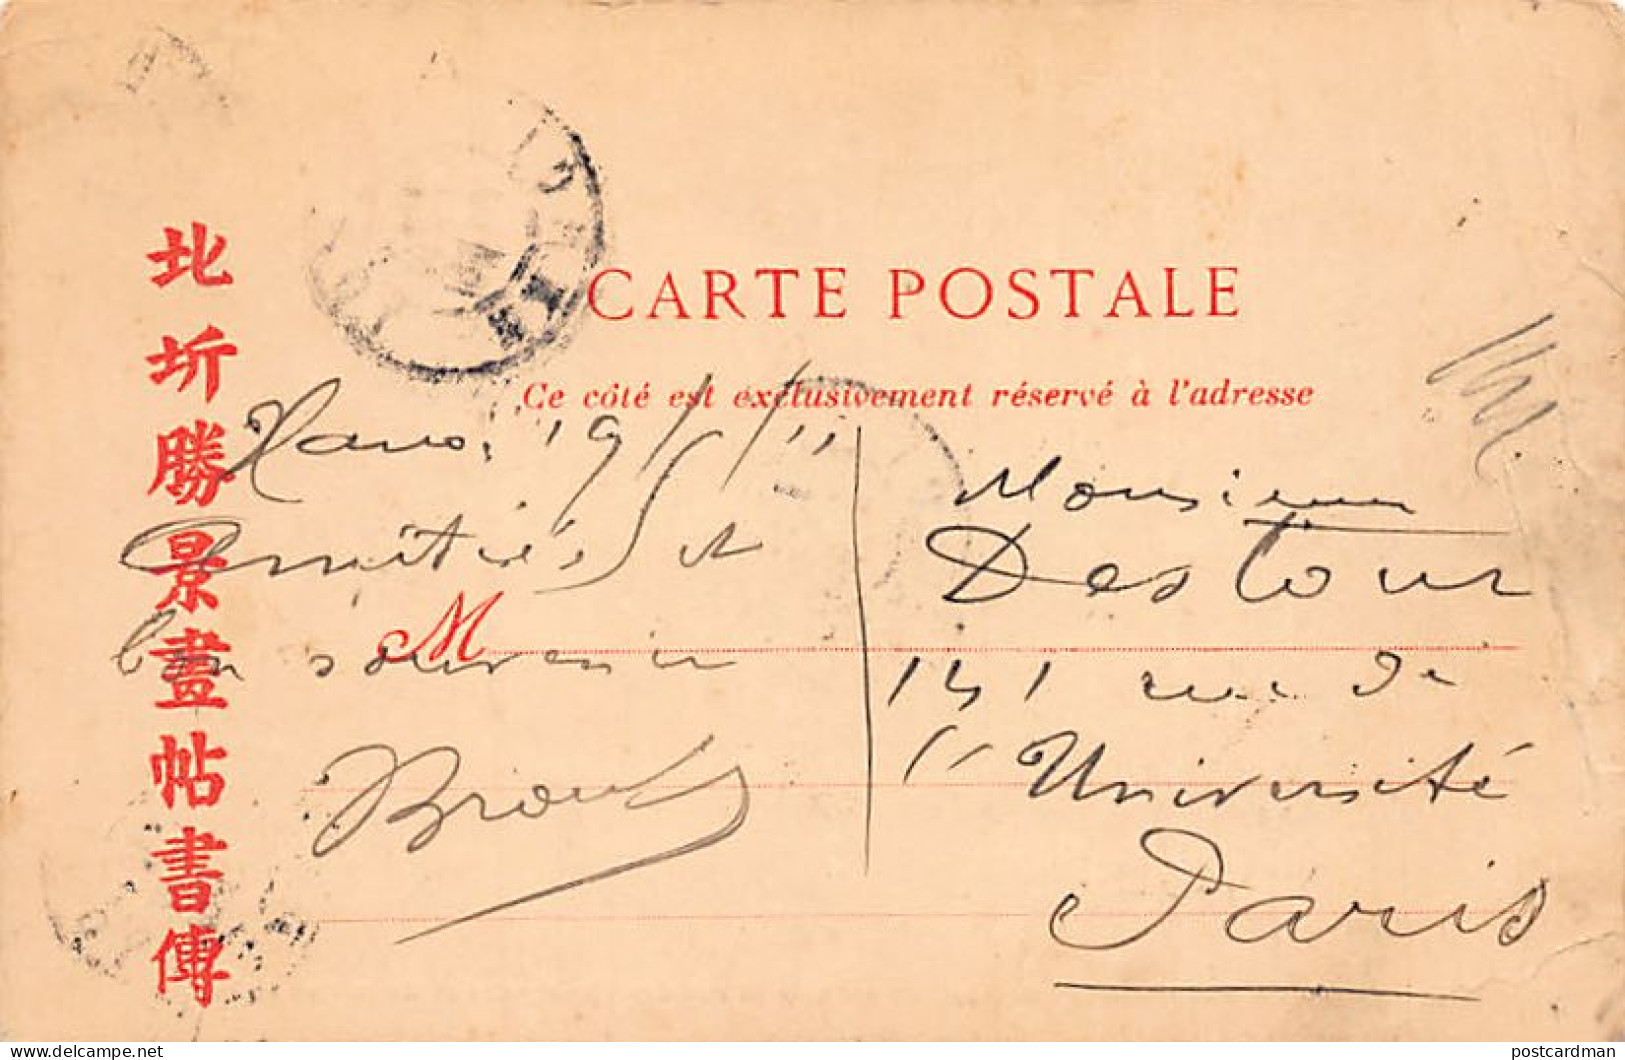 北圻勝景畫帖書傳
CARTE POSTALE
Ce côté est exclusivement réservé à l'adresse
Hanoi 19/5/11
Amitiés et
bon souvenir
M
Monsieur
Destour
141 rue de
l'Université
Paris
postcardman